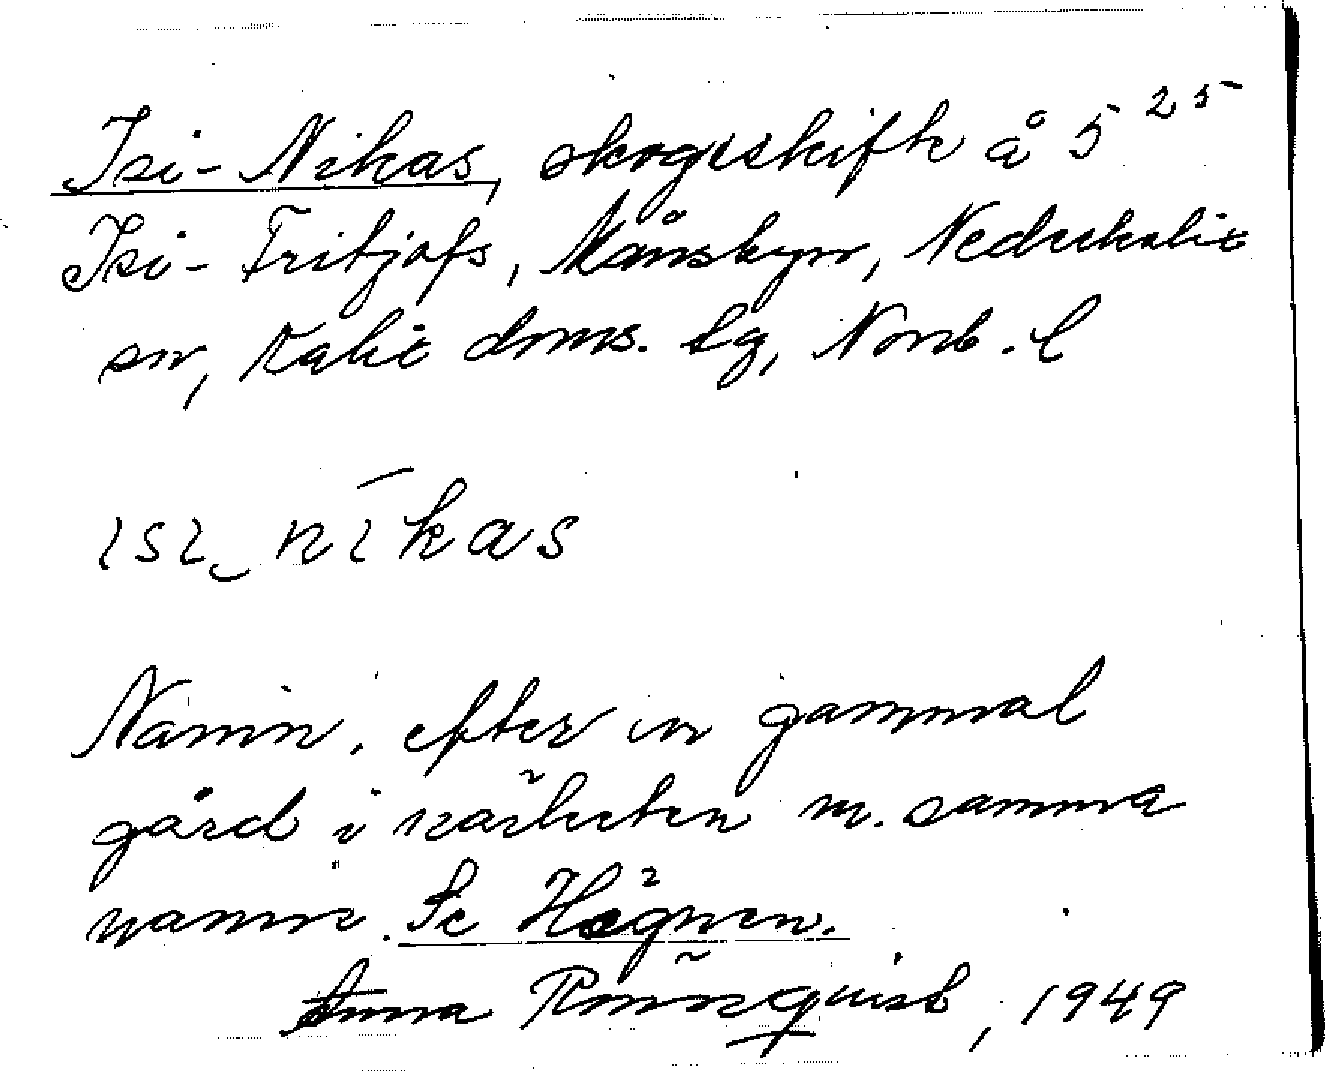 Isi-Nikas, skogsskifte å 5 25
Isi-Fritjofs, Månsbyn, Nederkalix
sn, Kalix doms. lg, Norrb. l
ɩsɩ‿nīkas
Namn. efter en gammal
gård i närheten m. samma
namn. Se Högnen.
Anna Rönnquist, 1949